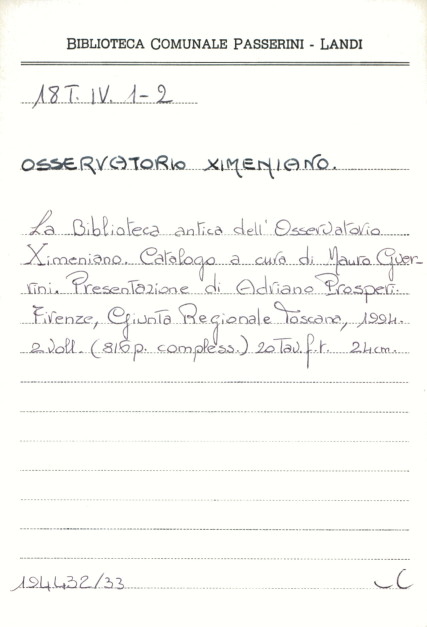 BIBLIOTECA COMUNALE PASSERINI - LANDI
18T. IV. 1-2
OSSERVATORIO XIMENIANO.
La Biblioteca antica dell'Osservatorio
Ximeniano. Catalogo a cura di Mauro Guer-
rini. Presentazione di Adriano Prosperi.
Firenze, Giunta Regionale Toscana, 1994.
2 voll. (816 p. compless.) 20 Tav. f.t. 24 cm.
194432/33